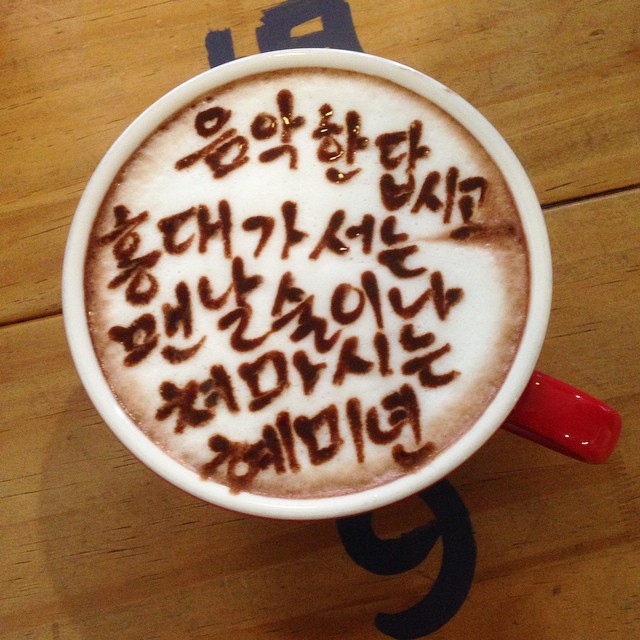 음악한답시고
홍대가서는
맨날술이나
쳐마시는
혜미년